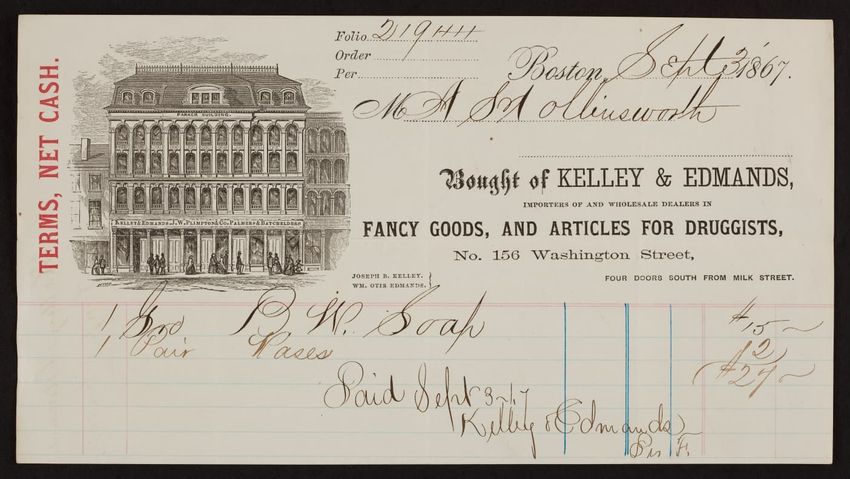 TERMS, NET CASH.
PARKER BUILDING.
KELLEY & EDMANDS. J. W. PLIMPTON & CO. PALMERS & BATCHELDERS
Folio 21944
Order
Per
Boston, Sept 3 1867.
M
Bought of KELLEY & EDMANDS,
IMPORTERS OF AND WHOLESALE DEALERS IN
FANCY GOODS, AND ARTICLES FOR DRUGGISTS,
No. 156 Washington Street,
JOSEPH B. KELLEY.
WM. OTIS EDMANDS.
FOUR DOORS SOUTH FROM MILK STREET.
1 Gro B. W. Soap $15
1 Pair Vases 12
$27
Paid Sept 3
Kelley & Edmands
Per F.